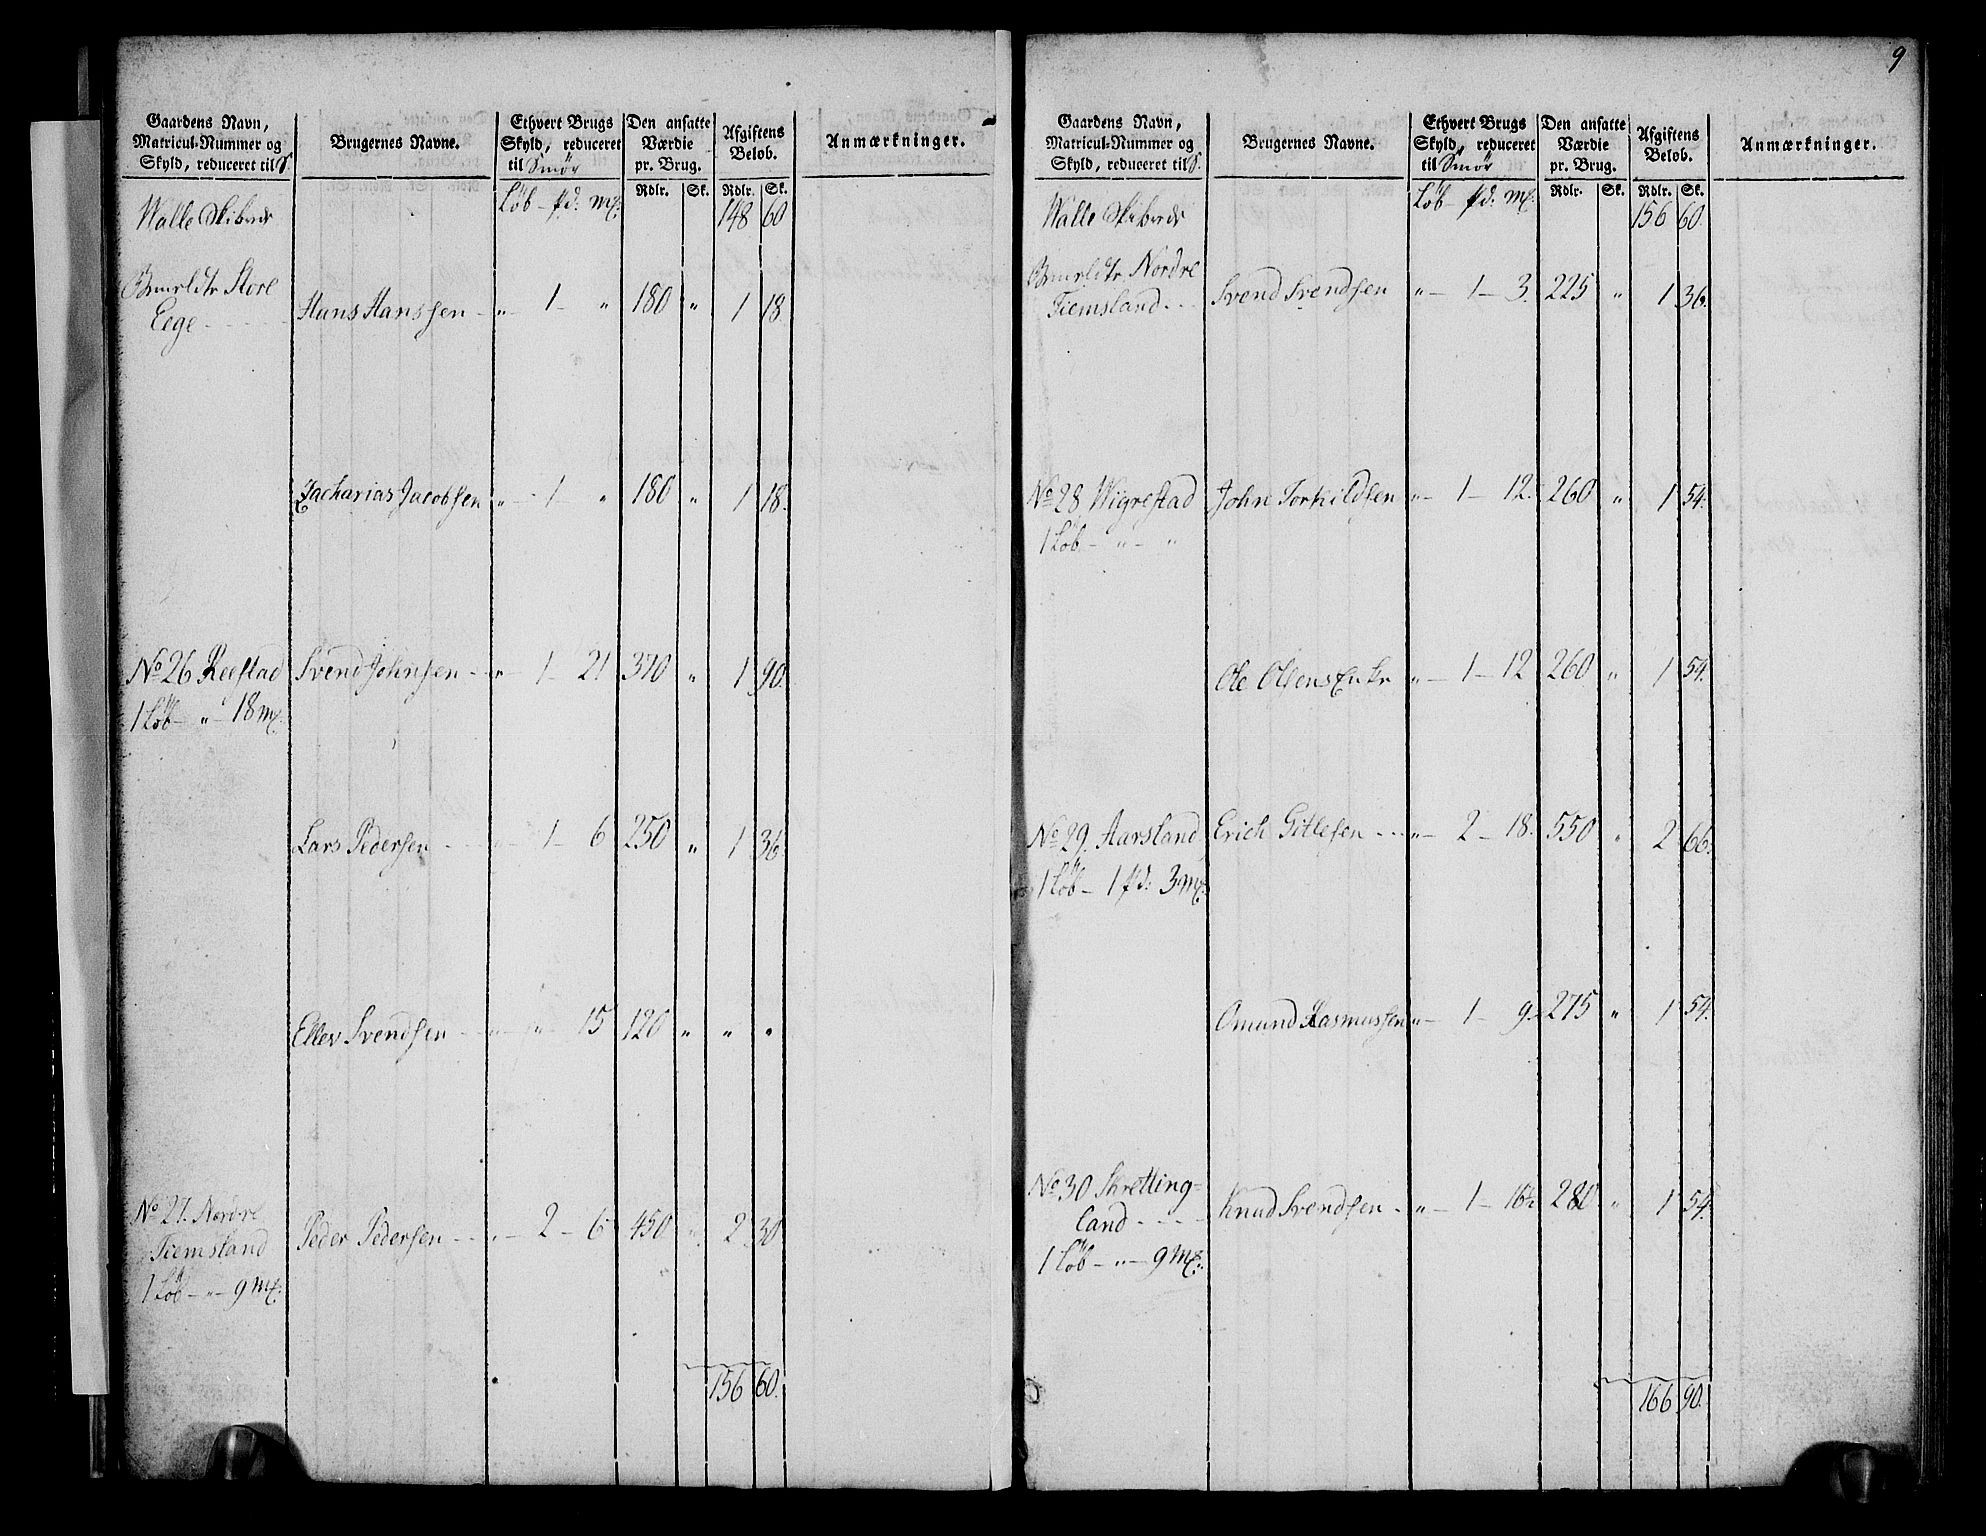 Gaardens Navn, Matricul-Nummer og Skyld, reduceret til S. | Brugernes Navne. | Ethvert Brugs Skyld, reduceret til Smör | Den ansatte Værdie pr. Brug. | Afgiftens Beløb. | Anmærkninger.
Löb – pd: mk: | Rdlr. | Sk. | Rdlr. | Sk.
Walle Skibrede | 148 | 60
Store Eege | Hans Hanssen | " – 1 – " | 180 | " | 1 | 18.
Zacharias Jacobsen | " – 1 – " | 180 | " | 1 | 18.
No 26 Reestad | Svend Johnsen | " – 1 – 21 | 370 | " | 1 | 90.
1 Löb – " – 18 mk:
Lars Pedersen | " – 1 – 6 | 250 | " | 1 | 36.
Ellev Svendsen | " – " – 15 | 120 | " | " | "
No 27. Nordre Tiemsland | Peder Pedersen | " – 2 – 6 | 450 | " | 2 | 30
1 Löb – " – 9 mk:
156 | 60.
9
Gaardens Navn, Matricul-Nummer og Skyld, reduceret til S. | Brugernes Navne. | Ethvert Brugs Skyld, reduceret til Smör | Den ansatte Værdie pr. Brug. | Afgiftens Beløb. | Anmærkninger.
Löb – pd: mk: | Rdlr. | Sk. | Rdlr. | Sk.
Walle Skibrede | 156 | 60.
Nordre Tiemsland | Svend Svendsen | " – 1 – 3. | 225 | " | 1 | 36.
No 28 Wigrestad | John Torkildsen | " – 1 – 12. | 260 | " | 1 | 54.
1 Löb – " – "
Ole Olsens Enke | " – 1 – 12 | 260 | " | 1 | 54.
No 29. Aarsland | Erich Gitlesen | " – 2 – 18. | 550 | " | 2 | 66.
1 Löb – 1 pd: 3 mk:
Omund Rasmussen | " – 1 – 9. | 275 | " | 1 | 54.
No 30 Skretting=
land | Knud Svendsen | " – 1 – 16½ | 280 | " | 1 | 54.
1 Löb – " – 9 mk:
166 | 90.